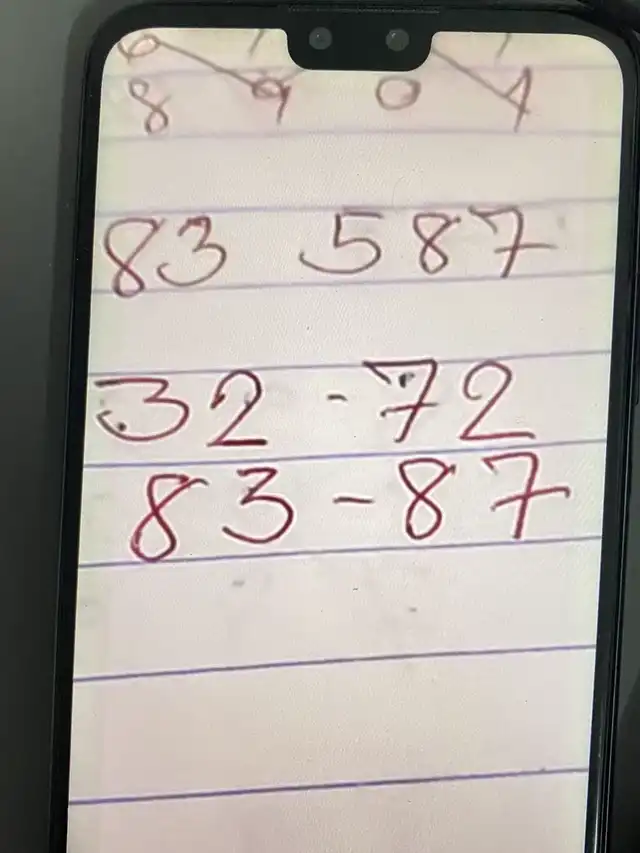 8 9 0 1
83 587
32 - 72
83 - 87